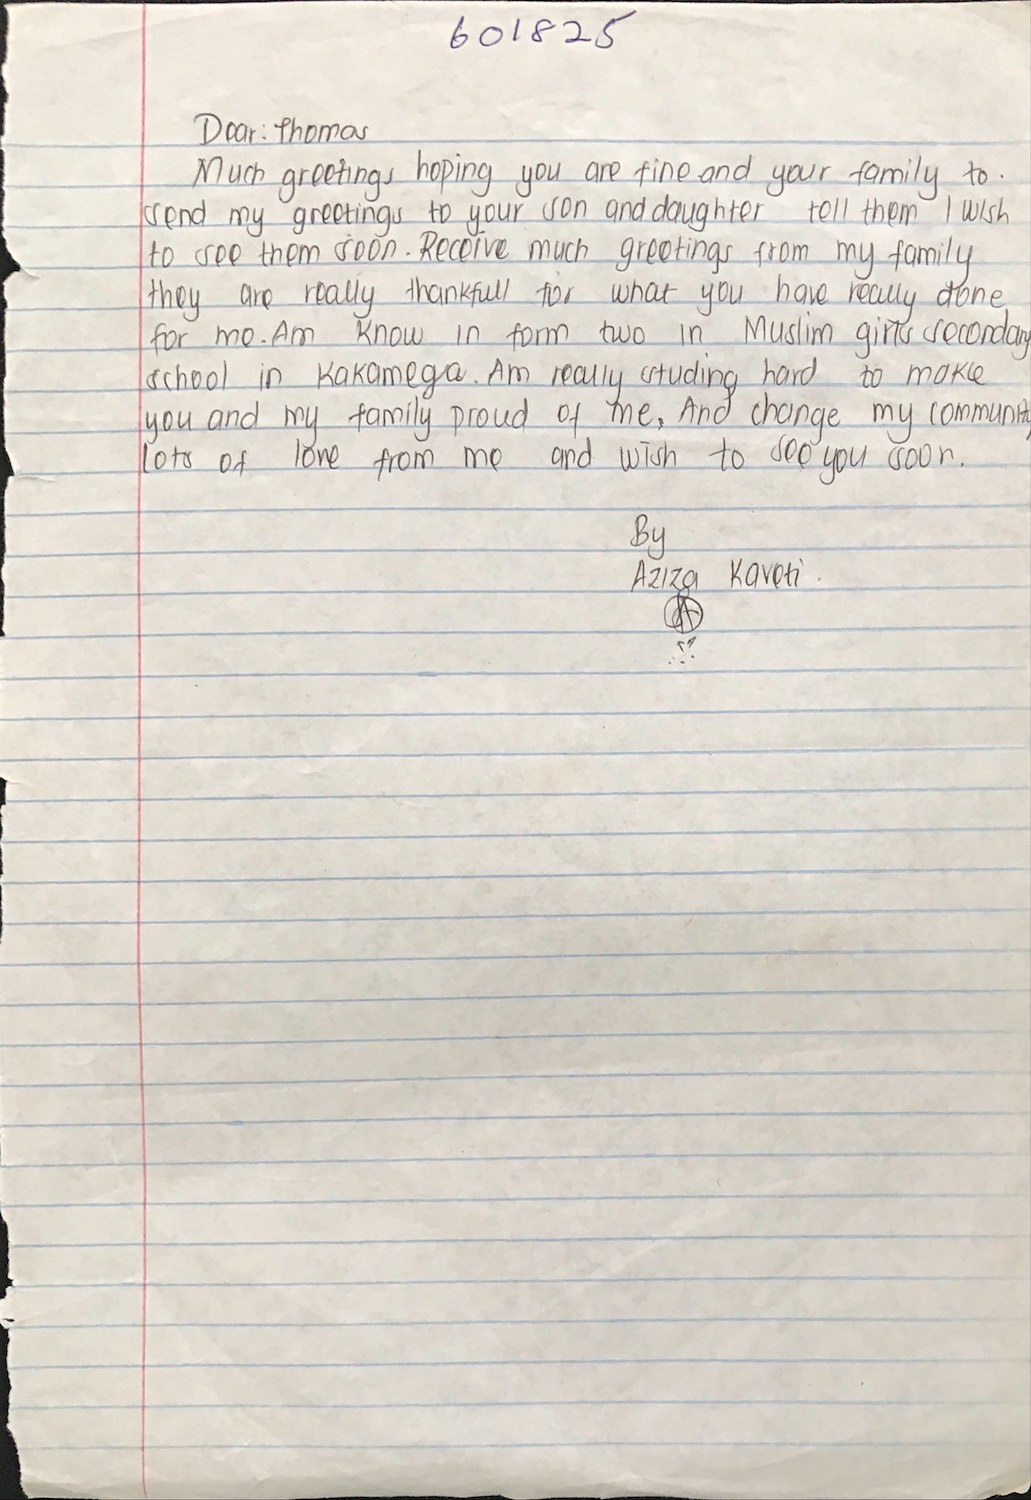 601825
Dear: thomas
Much greetings hoping you are fine and your family to.
send my greetings to your son and daughter tell them I wish
to see them soon. Receive much greetings from my family
they are really thankfull for what you have really done
for me. Am know in form two in Muslim girls secondary
school in Kakamega. Am really studing hard to make
you and my family proud of me, And change my community
lots of love from me and wish to see you soon.
By
Aziza Kaveti.